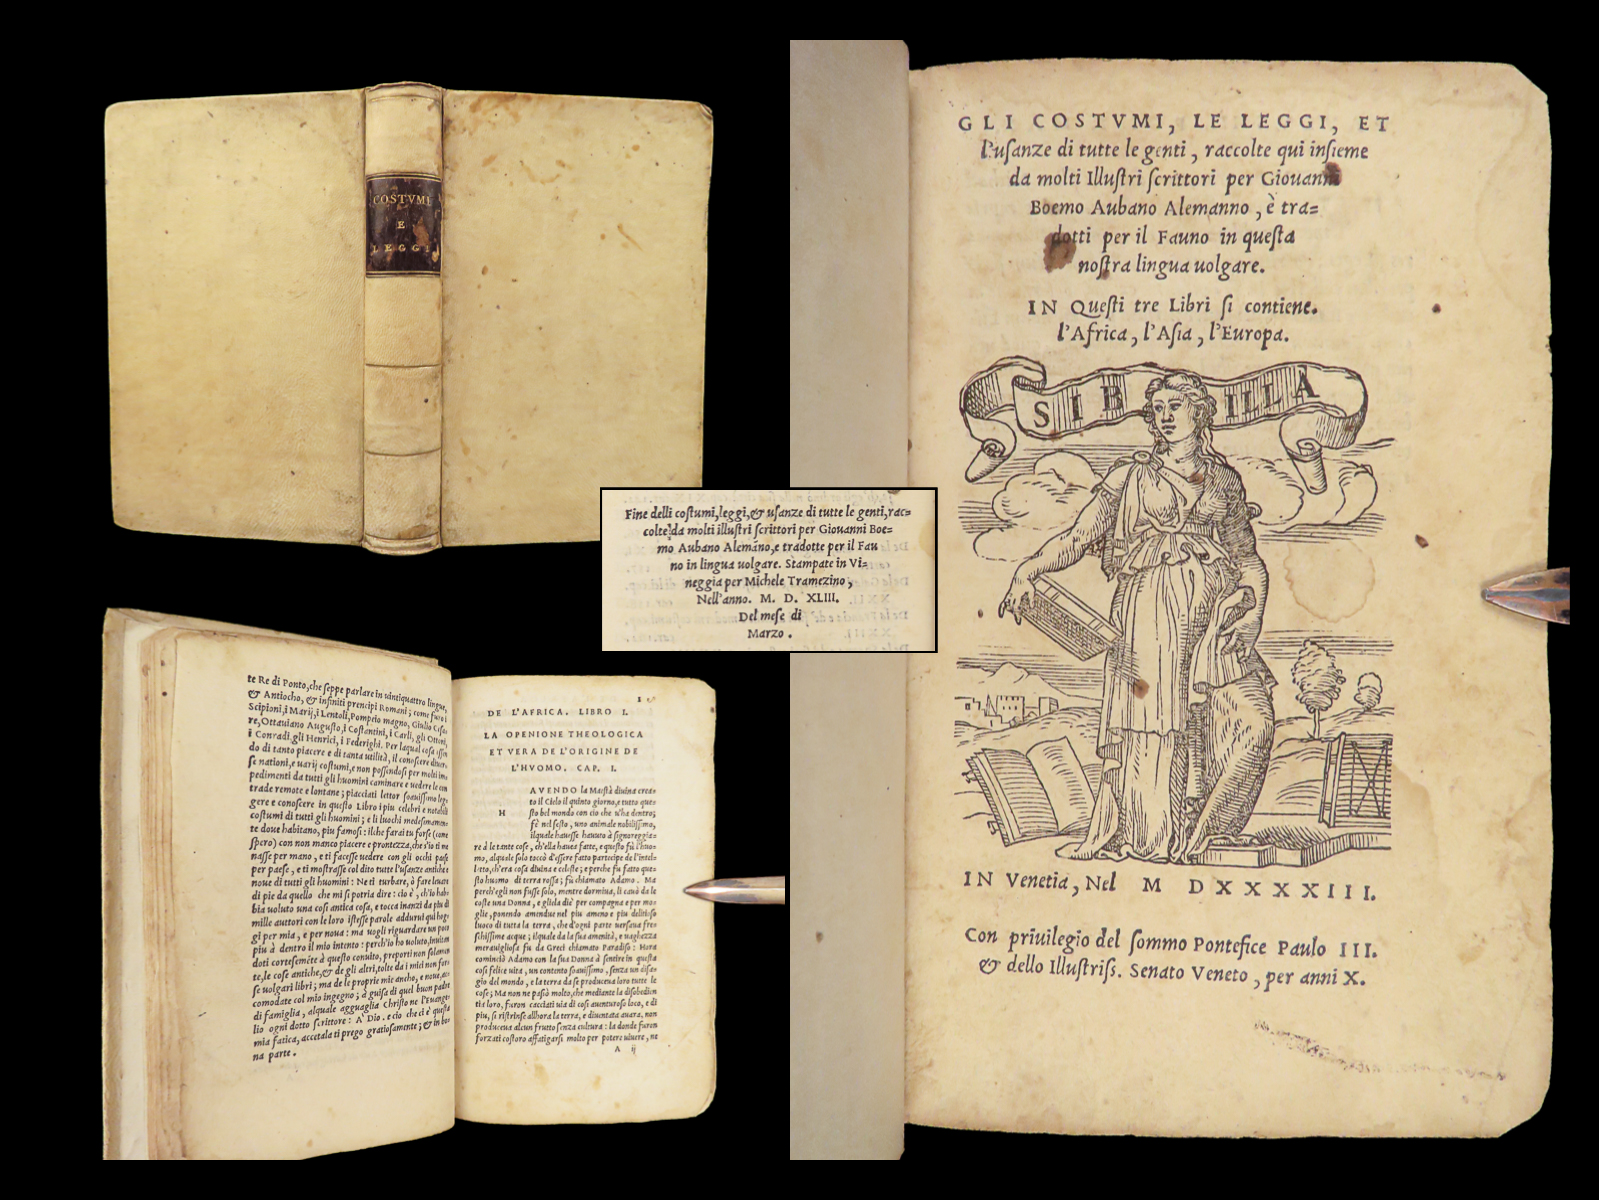 COSTVMI
E
LEGGI
GLI COSTVMI, LE LEGGI, ET
l'uſanze di tutte le genti, raccolte qui inſieme
da molti Illuſtri ſcrittori per Giouanni
Boemo Aubano Alemanno, è tra=
dotti per il Fauno in queſta
noſtra lingua uolgare.
IN Queſti tre Libri ſi contiene.
l'Africa, l'Aſia, l'Europa.
SIBILLA
IN Venetia, Nel M DXXXXIII.
Con priuilegio del ſommo Pontefice Paulo III.
& dello Illuſtriſs. Senato Veneto, per anni X.
Fine delli coſtumi, leggi, & uſanze di tutte le genti, rac=
colte da molti illuſtri ſcrittori per Giouanni Boe=
mo Aubano Alemáno, e tradotte per il Fau
no in lingua uolgare. Stampate in Vi=
neggia per Michele Tramezino,
Nell'anno. M. D. XLIII.
Del meſe di
Marzo.
te Re di Ponto, che ſeppe parlare in uintiquattro lingue,
& Antiocho, & infiniti prencipi Romani; come furo i
Scipioni, i Marij, i Lentoli, Pompeio magno, Giulio Ceſa=
re, Ottauiano Auguſto, i Coſtantini, i Carli, gli Ottoni,
i Conradi, gli Henrici, i Federighi. Per laqual coſa eſſen
do di tanto piacere e di tanta utilità, il conoſcere diuer=
ſe nationi, e uarij coſtumi, e non poſſendoſi per molti im=
pedimenti da tutti gli huomini caminare e uedere le con
trade remote e lontane; piacciati lettor ſoauiſſimo leg=
gere e conoſcere in queſto Libro i piu celebri e notabili
coſtumi di tutti gli huomini; e li luochi medeſimamen=
te doue habitano, piu famoſi: ilche farai tu forſe (come
ſpero) con non manco piacere e prontezza, che s'io ti me
naſſe per mano, e ti faceſſe uedere con gli occhi paſe
per paeſe, e ti moſtraſſe col dito tutte l'uſanze antiche e
noue di tutti gli huomini: Ne ti turbare, ò fare leuare
di pie da quello che mi ſi potria dire: cio è, ch'io hab=
bia uoluto una coſa antica coſa, e tocca inanzi da piu di
mille auttori con le loro iſteſſe parole addurui qui hog=
gi per mia, e per noua: ma uogli riguardare un poco
piu à dentro il mio intento: perch'io ho uoluto, inuitan
doti corteſeméte à queſto conuito, preporti non ſolamen
te, le coſe antiche, & de gli altri, tolte da i miei non for=
ſe uolgari libri; ma de le proprie mie ancho, e noue, ac=
comodate col mio ingegno; à guiſa di quel buon padre
di famiglia, alquale agguaglia Chriſto ne l'Euange
lio ogni dotto ſcrittore: A Dio. e cio che ci è queſta
mia fatica, accetala ti prego gratioſamente; & in bo=
na parte.
1
DE L'AFRICA. LIBRO I.
LA OPENIONE THEOLOGICA
ET VERA DE L'ORIGINE DE
L'HVOMO. CAP. I.
HAVENDO la Maeſtà diuina crea=
to il Cielo il quinto giorno, e tutto que=
ſto bel mondo con cio che u'ha dentro;
fè nel ſeſto, uno animale nobiliſſimo,
ilquale haueſſe hauuto à ſignoreggia=
re à le tante coſe, ch'ella haueа fatte, e queſto fù l'huo=
mo, alquale ſolo toccò d'eſſere fatto partecipe de l'intel=
letto, ch'era coſa diuina e celeſte; e perche fu fatto que=
ſto huomo di terra roſſa; fù chiamato Adamo. Ma
perch'egli non fuſſe ſolo, mentre dormiua, li cauò da le
coſte una Donna, e gliela diè per compagna e per mo=
glie, ponendo amendue nel piu ameno e piu delitioſo
luoco di tutta la terra, che d'ogni parte uerſaua fre=
ſchiſſime acque; ilquale da la ſua amenità, e uaghezza
merauiglioſa fu da Greci chiamato Paradiſo: Hora
cominciò Adamo con la ſua Donna à ſentire in queſta
coſi felice uita, un contento ſoauiſſimo, ſenza un diſa=
gio del mondo, e la terra da ſe produceua loro tutte le
coſe; Ma non ne paſsò molto, che mediante la diſobedien
tia loro, furon cacciati uia di coſi auenturoſo loco, e di
piu, ſi riſtrinſe allhora la terra, e diuentata auara, non
produceua alcun frutto ſenza cultura: la donde furon
forzati coſtoro affatigarſi molto per potere uiuere, ne
A ij